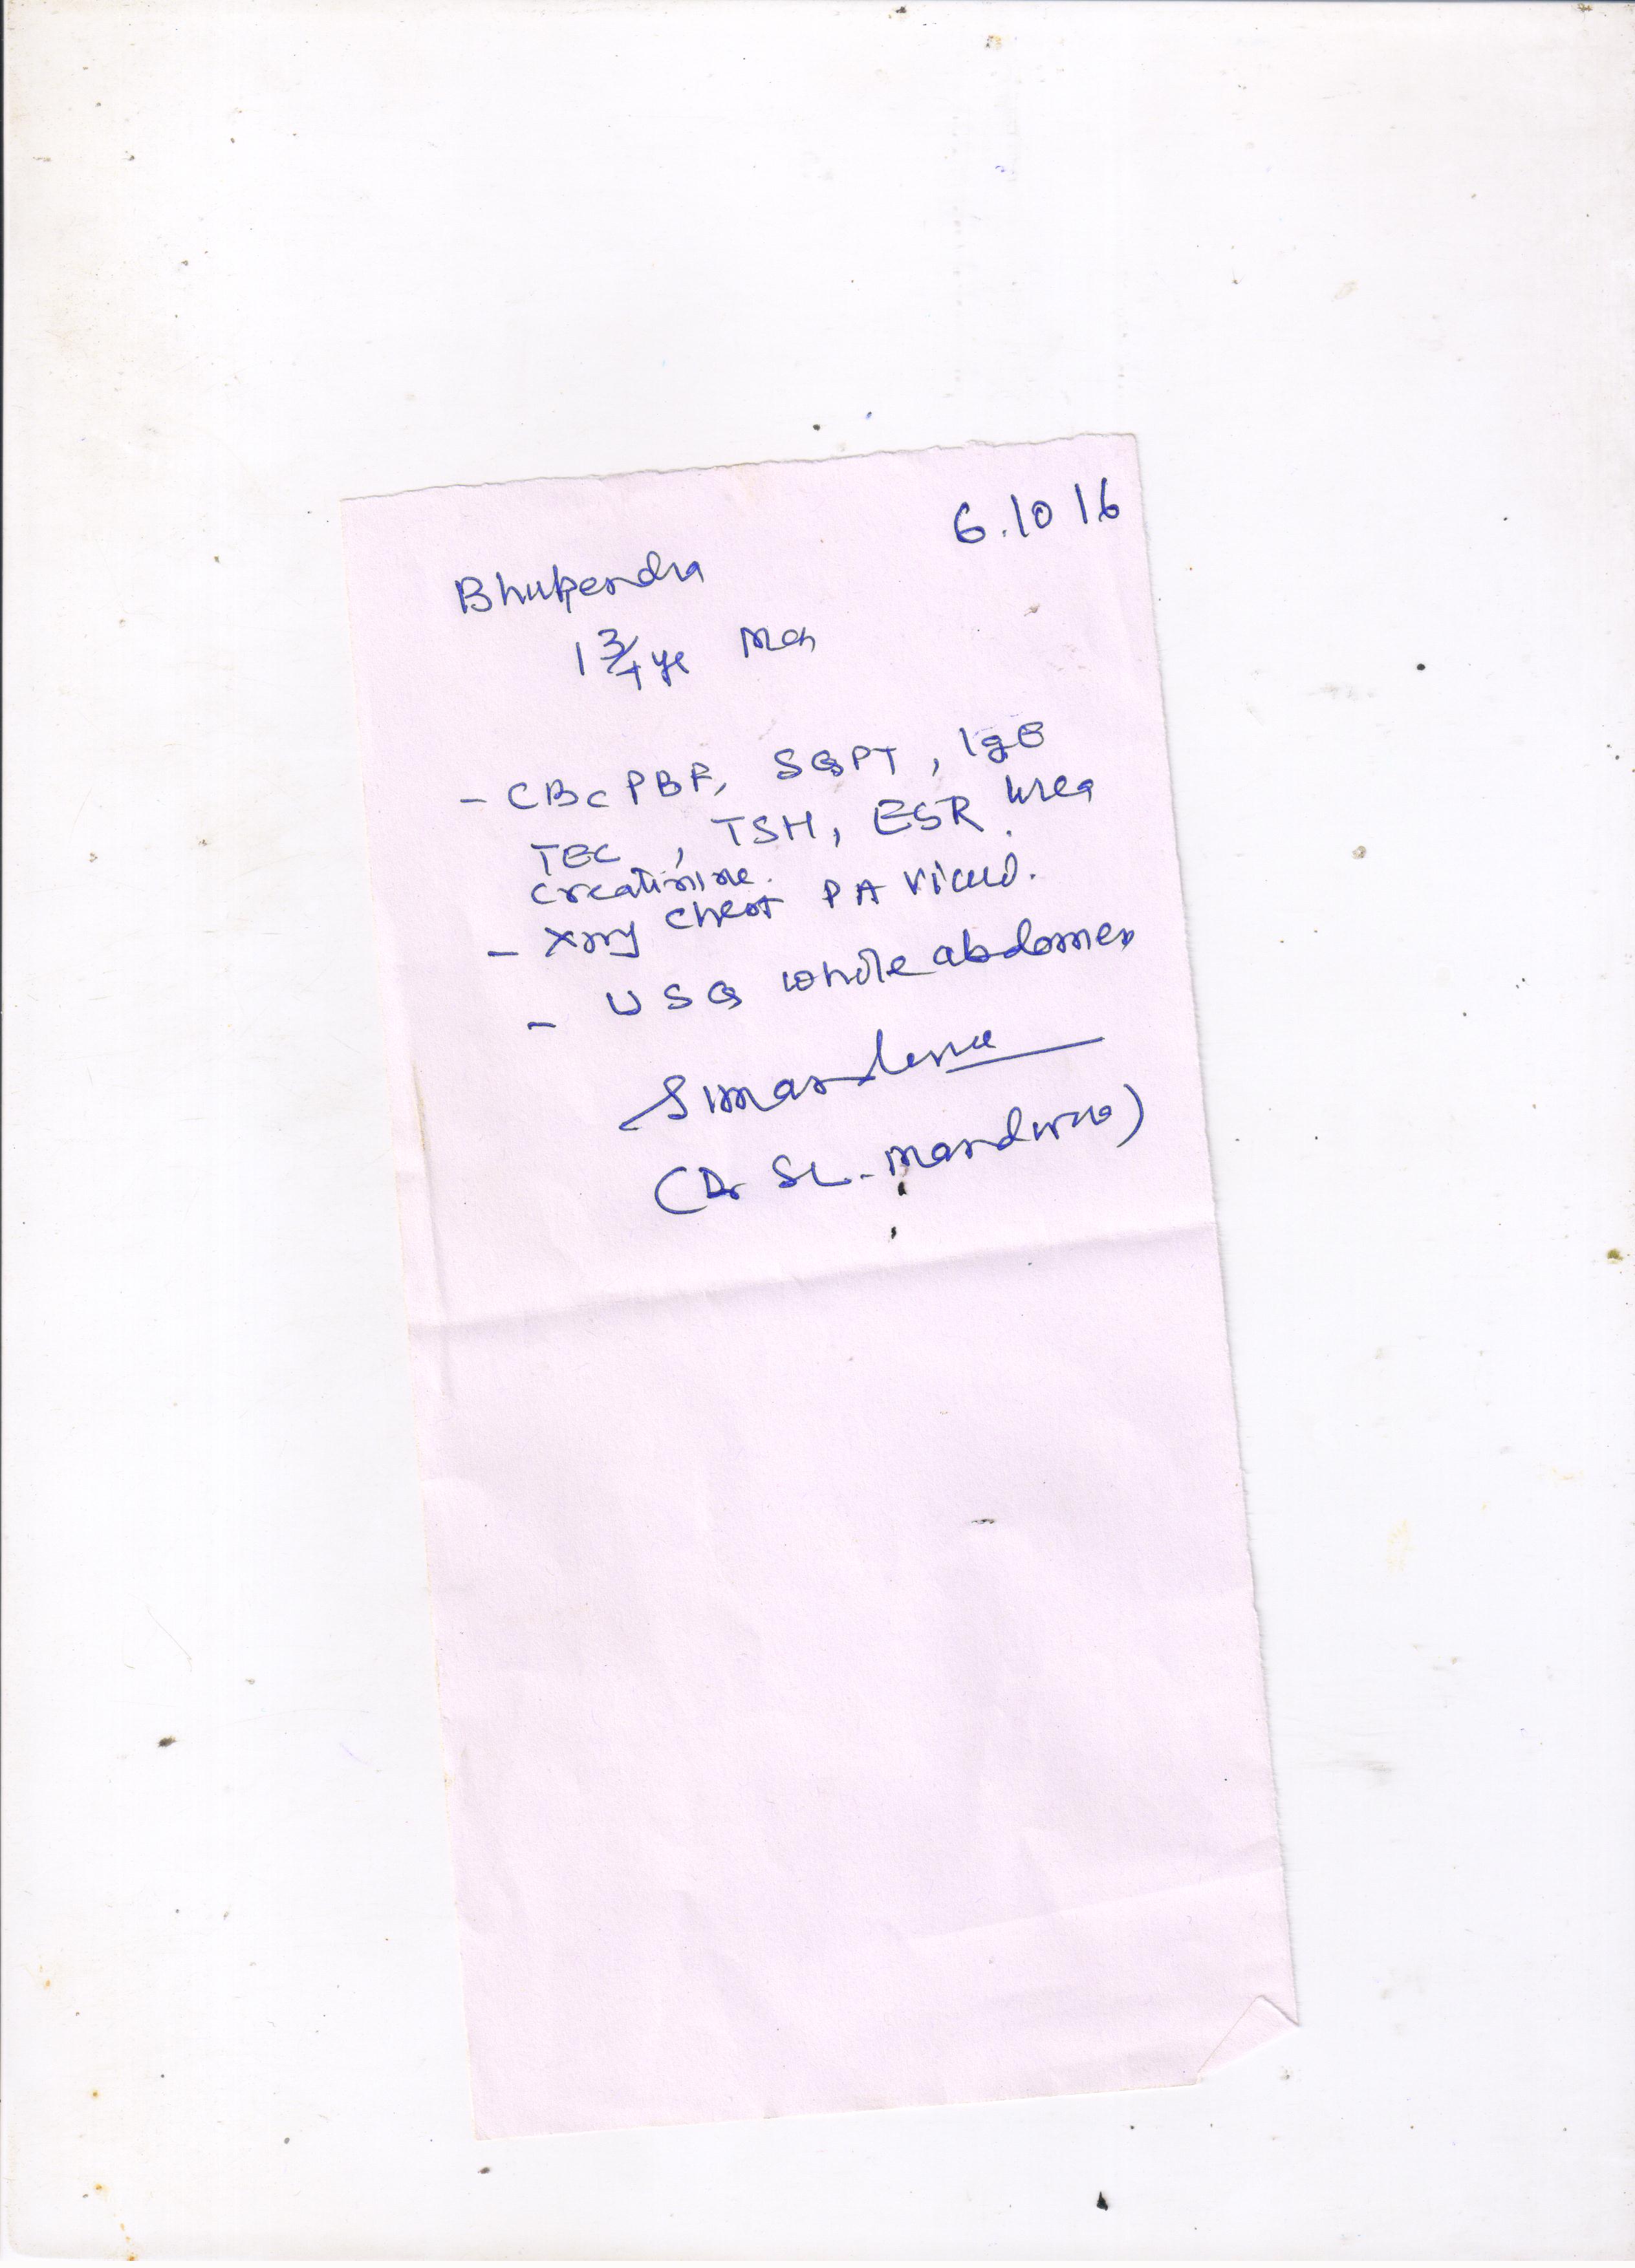 6.10 16
Bhupendra
1 3/4 ye Mch
- CBC PBF, SGPT, IgE
TEC, TSH, ESR. Urea
creatinine.
- Xray Chest PA View.
- USG whole abdomen
(Dr SL. Mandwra)